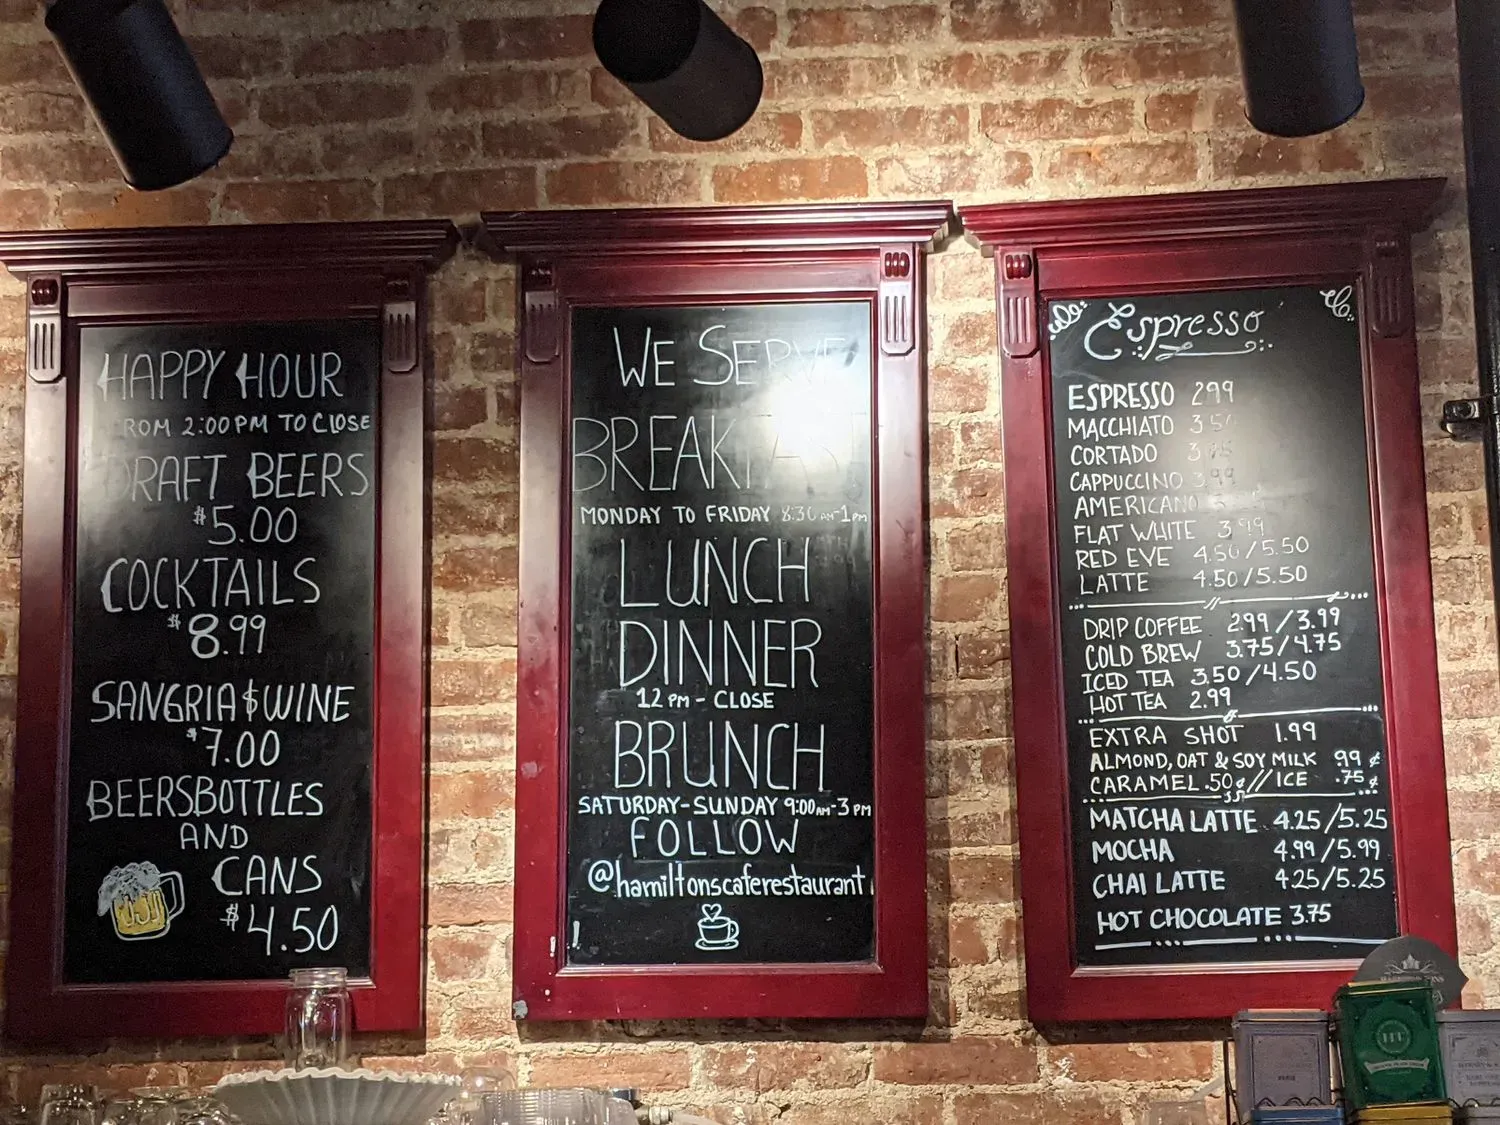 HAPPY HOUR
FROM 2:00PM TO CLOSE
DRAFT BEERS
$5.00
COCKTAILS
$8.99
SANGRIA $ WINE
$7.00
BEERSBOTTLES
AND
CANS
$4.50
WE SERVE
BREAKFAST
MONDAY TO FRIDAY 8:30AM-1PM
LUNCH
DINNER
12PM - CLOSE
BRUNCH
SATURDAY-SUNDAY 9:00AM-3PM
FOLLOW
@hamiltonscaferestaurant
Espresso
ESPRESSO 2.99
MACCHIATO 3.50
CORTADO
CAPPUCCINO 3.99
AMERICANO
FLAT WHITE 3.99
RED EYE 4.50/5.50
LATTE 4.50/5.50
DRIP COFFEE 2.99/3.99
COLD BREW 3.75/4.75
ICED TEA 3.50/4.50
HOT TEA 2.99
EXTRA SHOT 1.99
ALMOND, OAT & SOY MILK .99¢
CARAMEL .50¢//ICE .75¢
MATCHA LATTE 4.25/5.25
MOCHA 4.99/5.99
CHAI LATTE 4.25/5.25
HOT CHOCOLATE 3.75